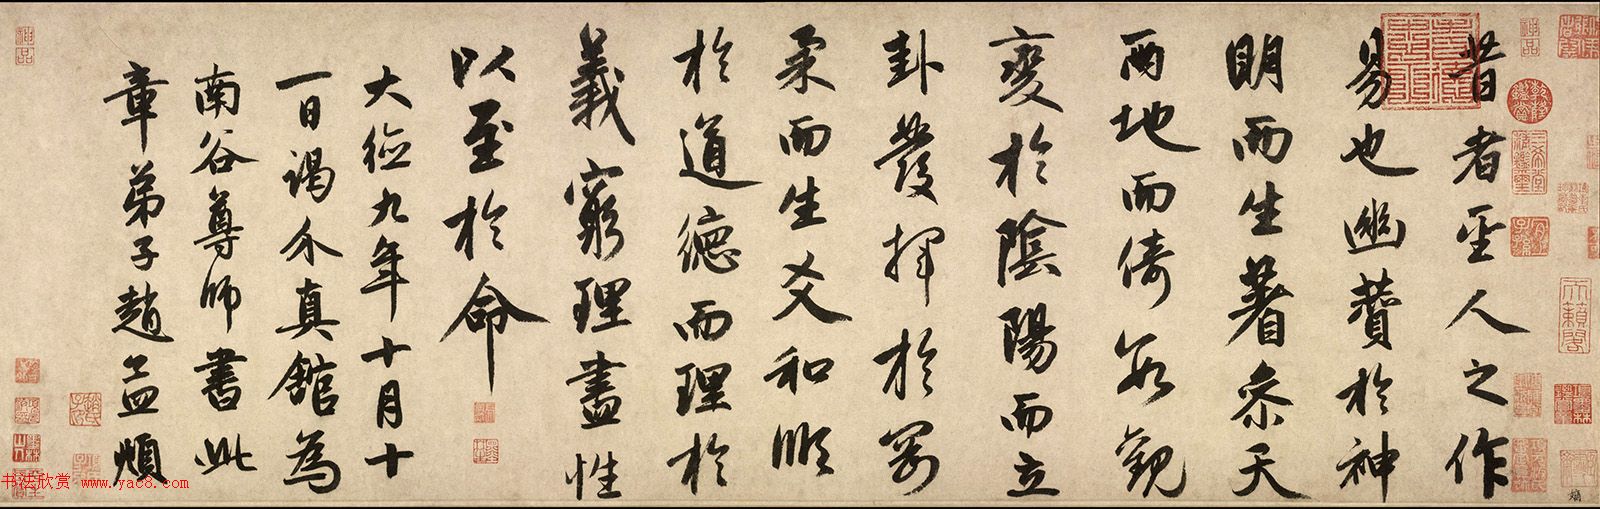 昔者聖人之作
易也幽贊於神
明而生蓍參天
兩地而倚數觀
變於陰陽而立
卦發揮於剛
柔而生爻和順
於道德而理於
義窮理盡性
以至於命
大德九年十月十
一日謁介真館為
南谷尊師書此
章弟子趙孟頫
神品
乾隆鑑賞
三希堂精鑑璽
宜子孫
天籟閣
神品
书法欣赏 www.yac8.com